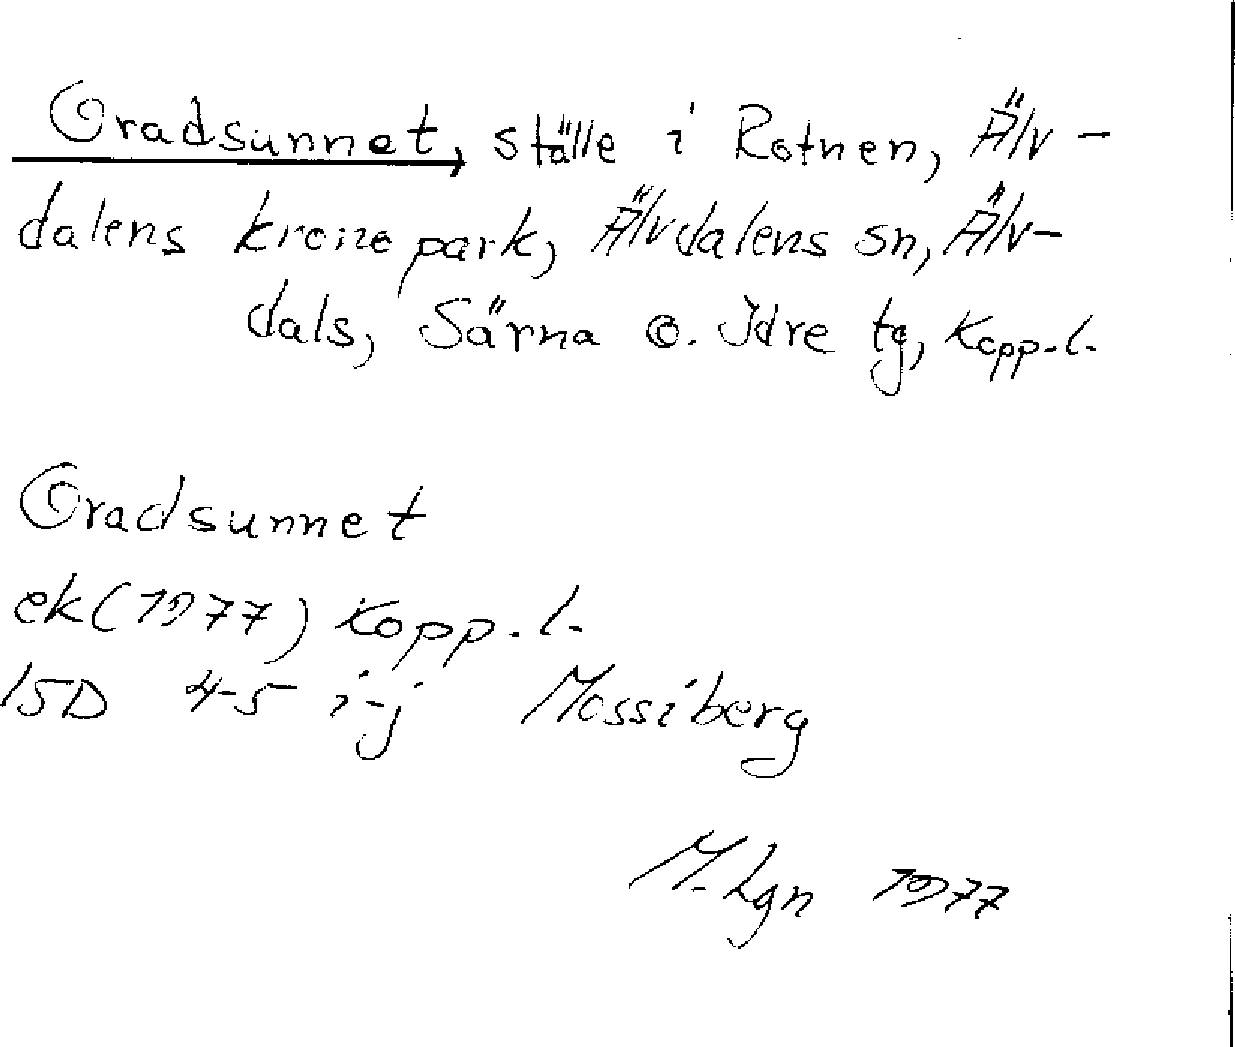 Oradsunnet, ställe i Rotnen, Älv-
dalens kronopark, Älvdalens sn, Älv-
dals, Särna o. Idre tg, Kopp. l.
Oradsunnet
ek (1977) Kopp. l.
15D 4-5 i-j Mossiberg
M. Lgn 1977